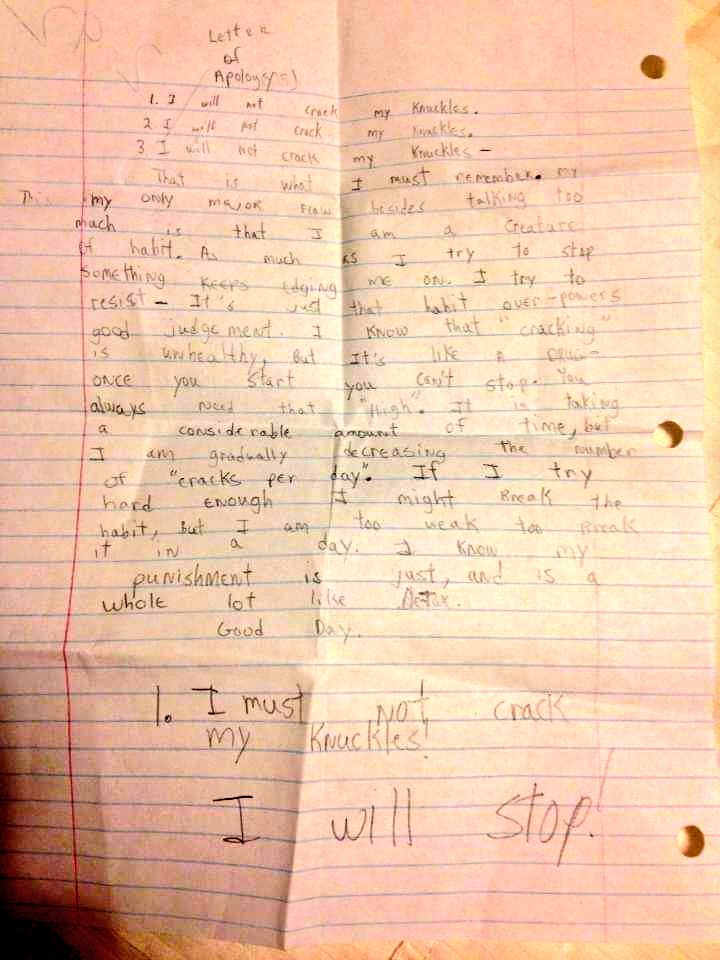 Letter
of
Apology =)
1. I will not crack my knuckles.
2. I will not crack my knuckles.
3. I will not crack my knuckles -
That is what I must remember. my
my only major flaw besides talking too
much is that I am a creature
of habit. As much as I try to stop
something keeps edging me on. I try to
resist - It's just that habit over-powers
good judgement. I know that "cracking"
is unhealthy, But It's like a
once you start you can't stop. You
always need that "High". It is taking
a considerable amount of time, but
I am gradually decreasing the number
of "cracks per day". If I try
hard enough I might Break the
habit, But I am too weak too Break
it in a day. I know my
punishment is just, and is a
whole lot like Detox.
Good Day.
1. I must not crack
my knuckles!
I will stop!